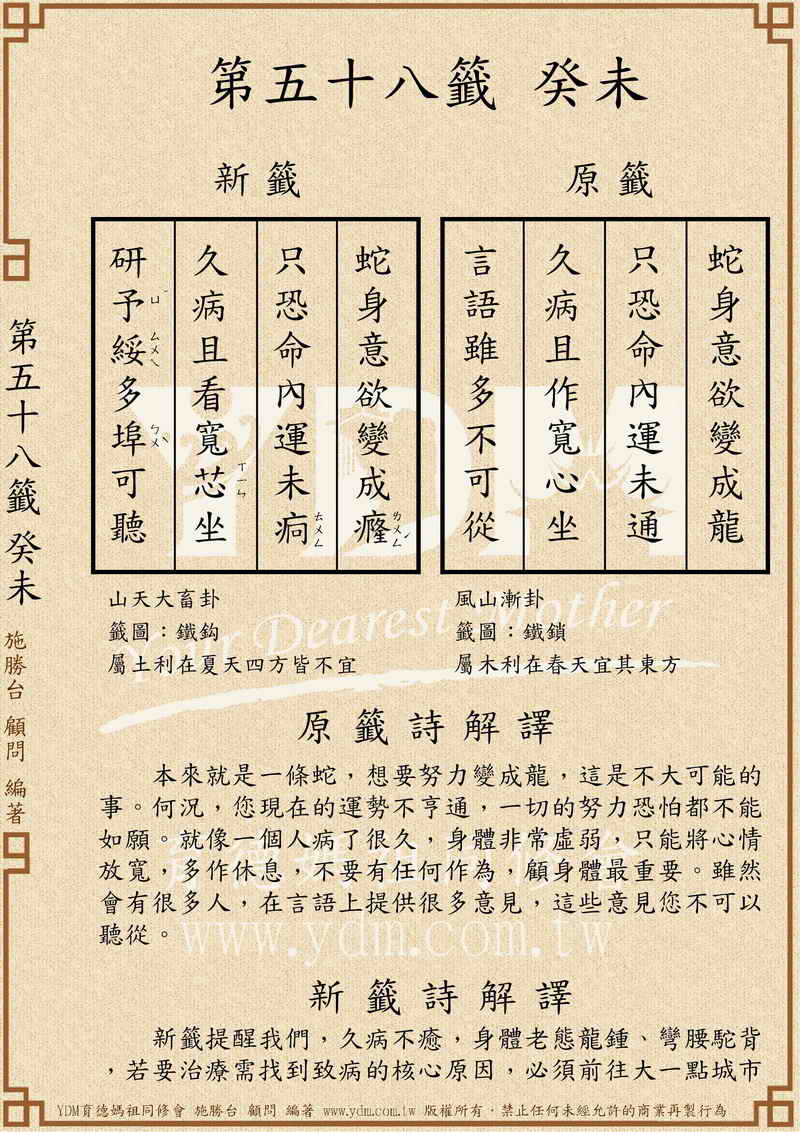 第五十八籤 癸未
原籤
蛇身意欲變成龍
只恐命內運未通
久病且作寬心坐
言語雖多不可從
風山漸卦
籤圖：鐵鎖
屬木利在春天宜其東方
新籤
蛇身意欲變成癃ㄌㄨㄥˊ
只恐命內運未痌ㄊㄨㄥ
久病且看寬芯ㄒㄧㄣ坐
研予ㄩˇ綏ㄙㄨㄟ多埠ㄅㄨˋ可聽
山天大畜卦
籤圖：鐵鈎
屬土利在夏天四方皆不宜
原籤詩解譯
本來就是一條蛇，想要努力變成龍，這是不大可能的
事。何況，您現在的運勢不亨通，一切的努力恐怕都不能
如願。就像一個人病了很久，身體非常虛弱，只能將心情
放寬，多作休息，不要有任何作為，顧身體最重要。雖然
會有很多人，在言語上提供很多意見，這些意見您不可以
聽從。
新籤詩解譯
新籤提醒我們，久病不癒，身體老態龍鍾、彎腰駝背
，若要治療需找到致病的核心原因，必須前往大一點城市
第五十八籤 癸未 施勝台 顧問 編著
YDM育德媽祖同修會 施勝台 顧問 編著 www.ydm.com.tw 版權所有‧禁止任何未經允許的商業再製行為
YDM
Your Dearest Mother
育德媽祖同修會
www.ydm.com.tw